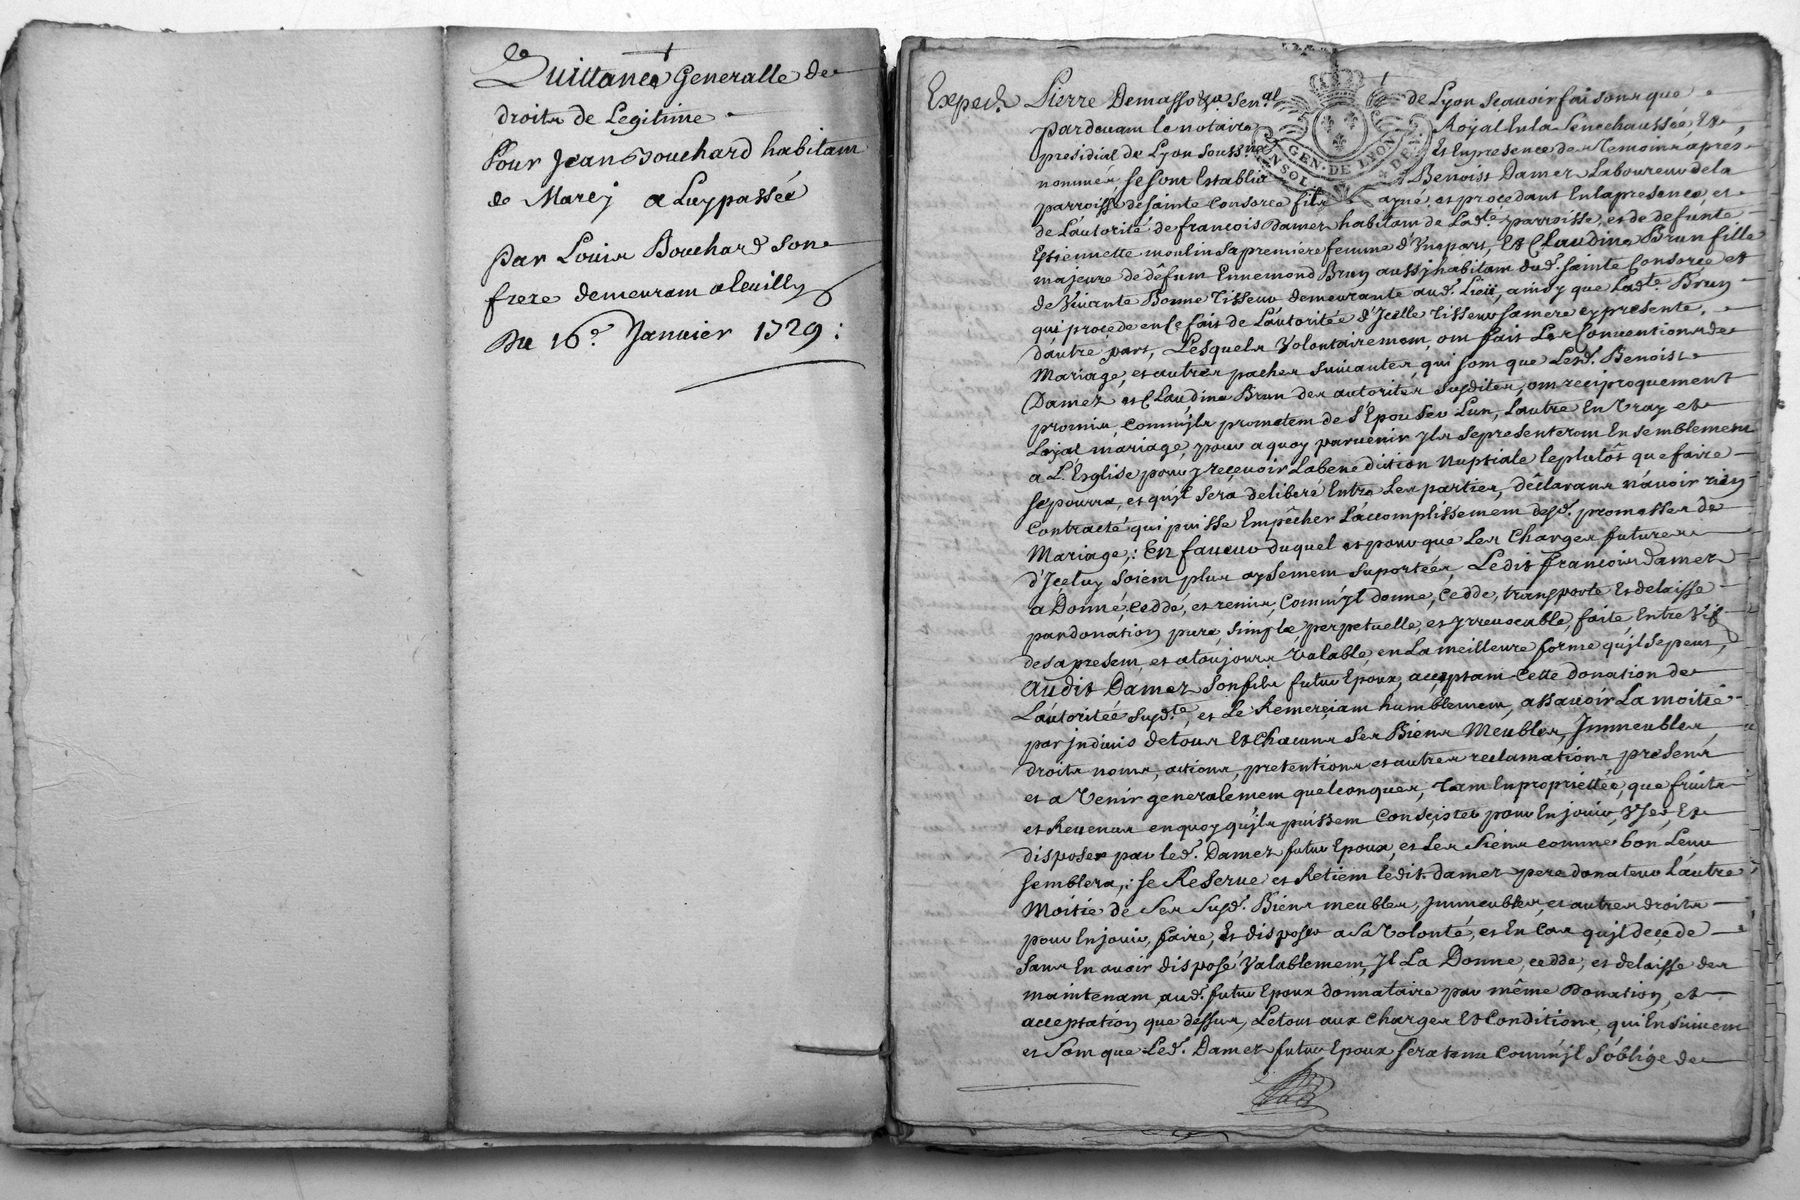 Quittance Generalle de
droits de Legitime
Pour Jean Bouchard habitant
de Marcy a Luy passée
par Louis Bouchard son
frere demeurant aleuilly
Du 16e. Janvier 1729 :
Exped.
Pierre Demasso &a Senal de Lyon scavoir faisons que
pardevant le notaire Royal En la Senechaussée, Et
presidial de Lyon soussné Et En presence des temoins apres
nommés se sont Establis Benoist Damez Laboureur de la
parroisse de sainte Consorce fils ayné, et procedant En la presence, et
de L'autorité de françois Damez habitant de Ladte. parroisse, et de defunte
Estiennette moulin sa premiere femme d'Une part, Et Claudine Brun fille
majeure de défunt Ennemond Brun aussy habitant dud. sainte Consorce et
de Vivante Bonne Tisseur demeurante aud. Lieu, ainsy que Ladte. Brun
qui procede en Ce fait de L'autoritée d'Jcelle Tisseur sa mere cy presente,
d'autre part, Lesquels Volontairement, ont fait Les Conventions de
Mariage, et autres paches suivantes qui sont que Lesd. Benoist
Damez et Claudine Brun des autorités susdites, ont reciproquement
promis, comm'jls promettent de s'Epouser L'un, L'autre En Vray et
Loyal mariage, pour a quoy parvenir jls se presenteront Ensemblement
a L'Esglise pour y reçevoir La benediction nuptiale le plutôt que faire
se pourra, et qu'jl sera deliberé Entre Les parties, déclarans n'avoir rien
Contracté qui puisse Empêcher L'accomplissement desd. promesses de
Mariage ; En faveur duquel et pour que Les Charges futures
d'Jceluy soient plus aysement suportées, Ledit françois Damez
a Donné, cedé, et remis, Comm'jl donne, Cedde, transporte Et delaisse
par donation pure, simple, perpetuelle, et jrrevocable, faite Entre Vifs
des a present, et a toujours Valable, en La meilleure forme qu'jl se peut,
audit Damez son fils futur Epoux, acceptant Cette donation de
L'autoritée susdte, et Le Remerçiant humblement, assavoir La moitié
par jndivis de tous Et Chacuns ses Biens Meubles, Jmmeubles,
droits noms, actions, pretentions et autres reclamations presens
et a Venir generalement quelconques, Tant En propriettée, que fruits
et Revenus en quoy qu'jls puissent Consçister pour En jouir, User, Et
disposer par led. Damez futur Epoux, et Les Siens comme bon Leur
semblera ; se Reserve et Retient ledit Damez pere donateur L'autre
Moitié de Ses Susd. Biens meubles, jmmeubles, et autres droits
pour En jouir, faire, Et disposer a sa Volonté, et En Cas qu'jl deçede
sans En avoir disposé Valablement, Jl La Donne, cedde, et delaisse des
maintenant aud. futur Epoux donnataire par même Donation, et
acceptation que dessus, Le tout aux Charges Et Conditions qui Ensuivent
et sont que Led. Damez futur Epoux sera tenu Comm'jl S'oblige de
GEN. DE LYON